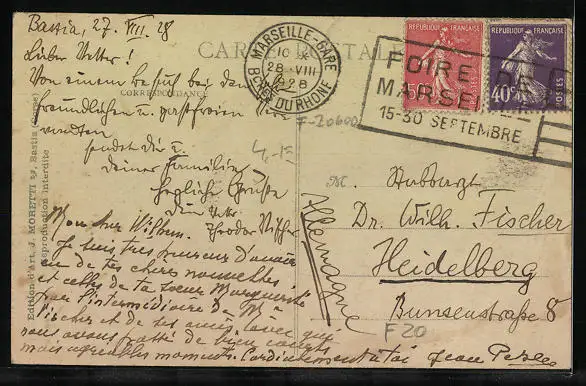 Bastia, 27. VIII. 28
CARTE POSTALE
CORRESPONDANCE
Lieber Vetter!
Von einem Besuch bei den
freundlichen u. gastfreien
sendet dir u.
deiner Familie
herzliche Grüße
dein Vetter
Theodor Vischer
Mon cher Wilhem.
Je suis très heureux d'avoir
eu de tes chères nouvelles
et celles de ta soeur Marguerite
par l'intermédiaire de Mr
Fischer et de ses amis avec qui
nous avons passé de bien courts
mais agréables moments. Cordialement à toi Jean
Edition d'Art. J. MORETTI Bastia (Corse)
Reproduction Interdite
MARSEILLE-GARE
10
28-VIII
28
BCHES DU RHONE
FOIRE DE
MARSEILLE
15-30 SEPTEMBRE
50
40c
POSTES
F-20600
M.
Dr. Wilh. Fischer
Heidelberg
Bunsenstraße 8
Allemagne
F20